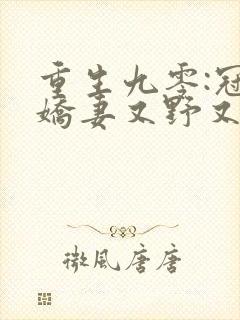 重生九零:冠
嬌妻又野又
微風唐唐